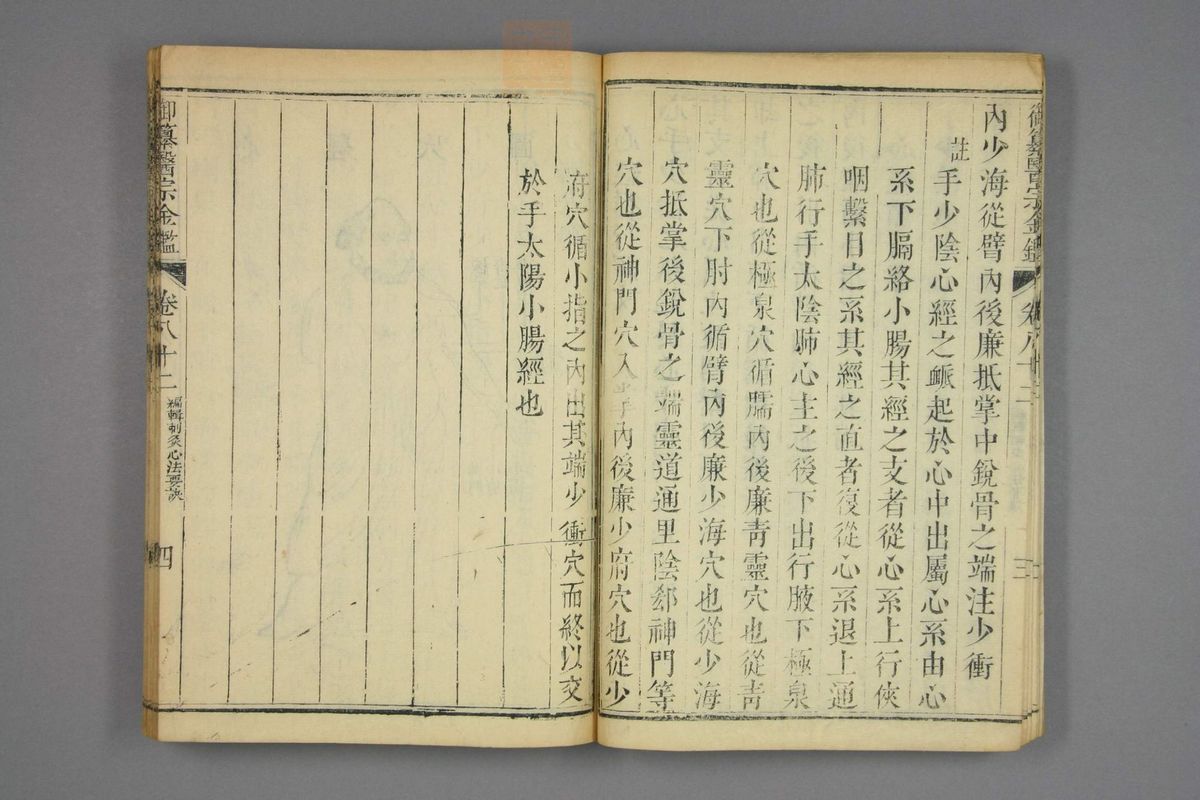 御纂醫宗金鑑 卷八十二 三
內少海從臂內後廉抵掌中銳骨之端注少衝
註手少陰心經之脈起於心中出屬心系由心
系下膈絡小腸其經之支者從心系上行俠
咽繫目之系其經之直者復從心系退上通
肺行手太陰肺心主之後下出行腋下極泉
穴也從極泉穴循臑內後廉靑靈穴也從靑
靈穴下肘內循臂內後廉少海穴也從少海
穴抵掌後銳骨之端靈道通里陰郄神門等
穴也從神門穴入掌內後廉少府穴也從少
府穴循小指之內出其端少衝穴而終以交
於手太陽小腸經也
御纂醫宗金鑑 卷八十二 編輯刺灸心法要訣 四